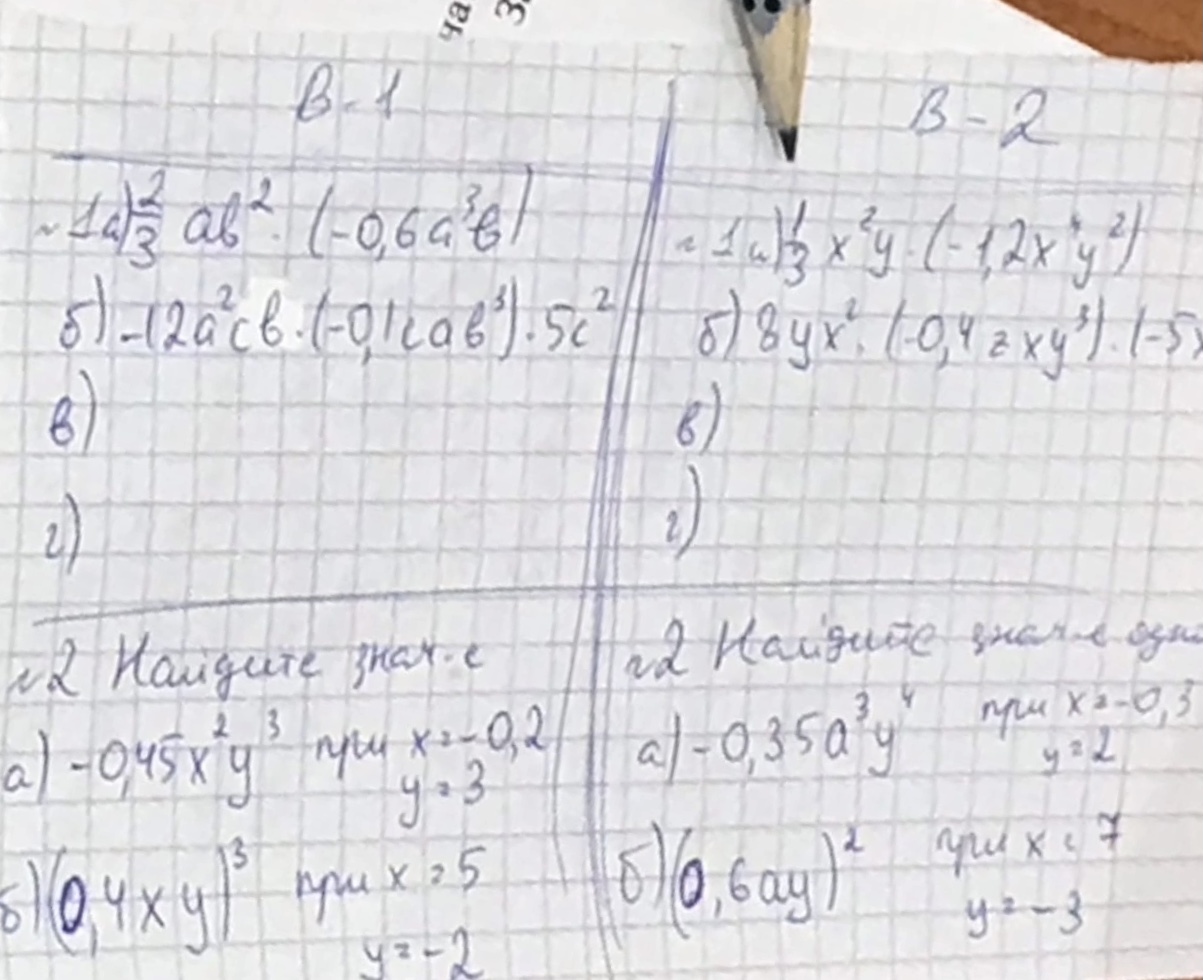 ча
В-1
№1а) 2/3 ab² · (-0,6a³b)
б) -12a²cb · (-0,1cab³) · 5c²
в)
г)
№2 Найдите знач-е
а) -0,45x²y³ при x=-0,2
y=3
б) (0,4xy)³ при x=5
y=-2
В-2
№1а) 1/3 x²y · (-1,2x⁴y²)
б) 8yx² · (-0,4zxy³) · (-5
в)
г)
№2 Найдите знач-е одн
а) -0,35a³y⁴ при x=-0,3
y=2
б) (0,6ay)² при x=7
y=-3